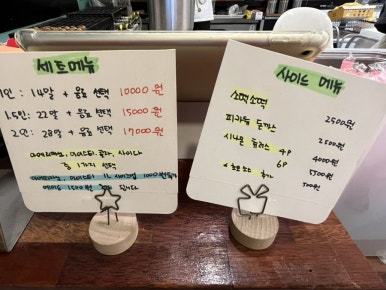 세트메뉴
1인 : 14알 + 음료 선택 10000원
1.5인 : 22알 + 음료 선택 15000원
2인 : 28알 + 음료 선택 17000원
아메리카노, 아이스티, 콜라, 사이다
중 1가지 선택
아메리카노, 아이스티 1L 사이즈업 1000원 추가
1500원
사이드 메뉴
소떡소떡 2500원
피카츄 돈까스 2500원
시나몬 츄러스 4P 4000원
6P 5500원
추가 500원